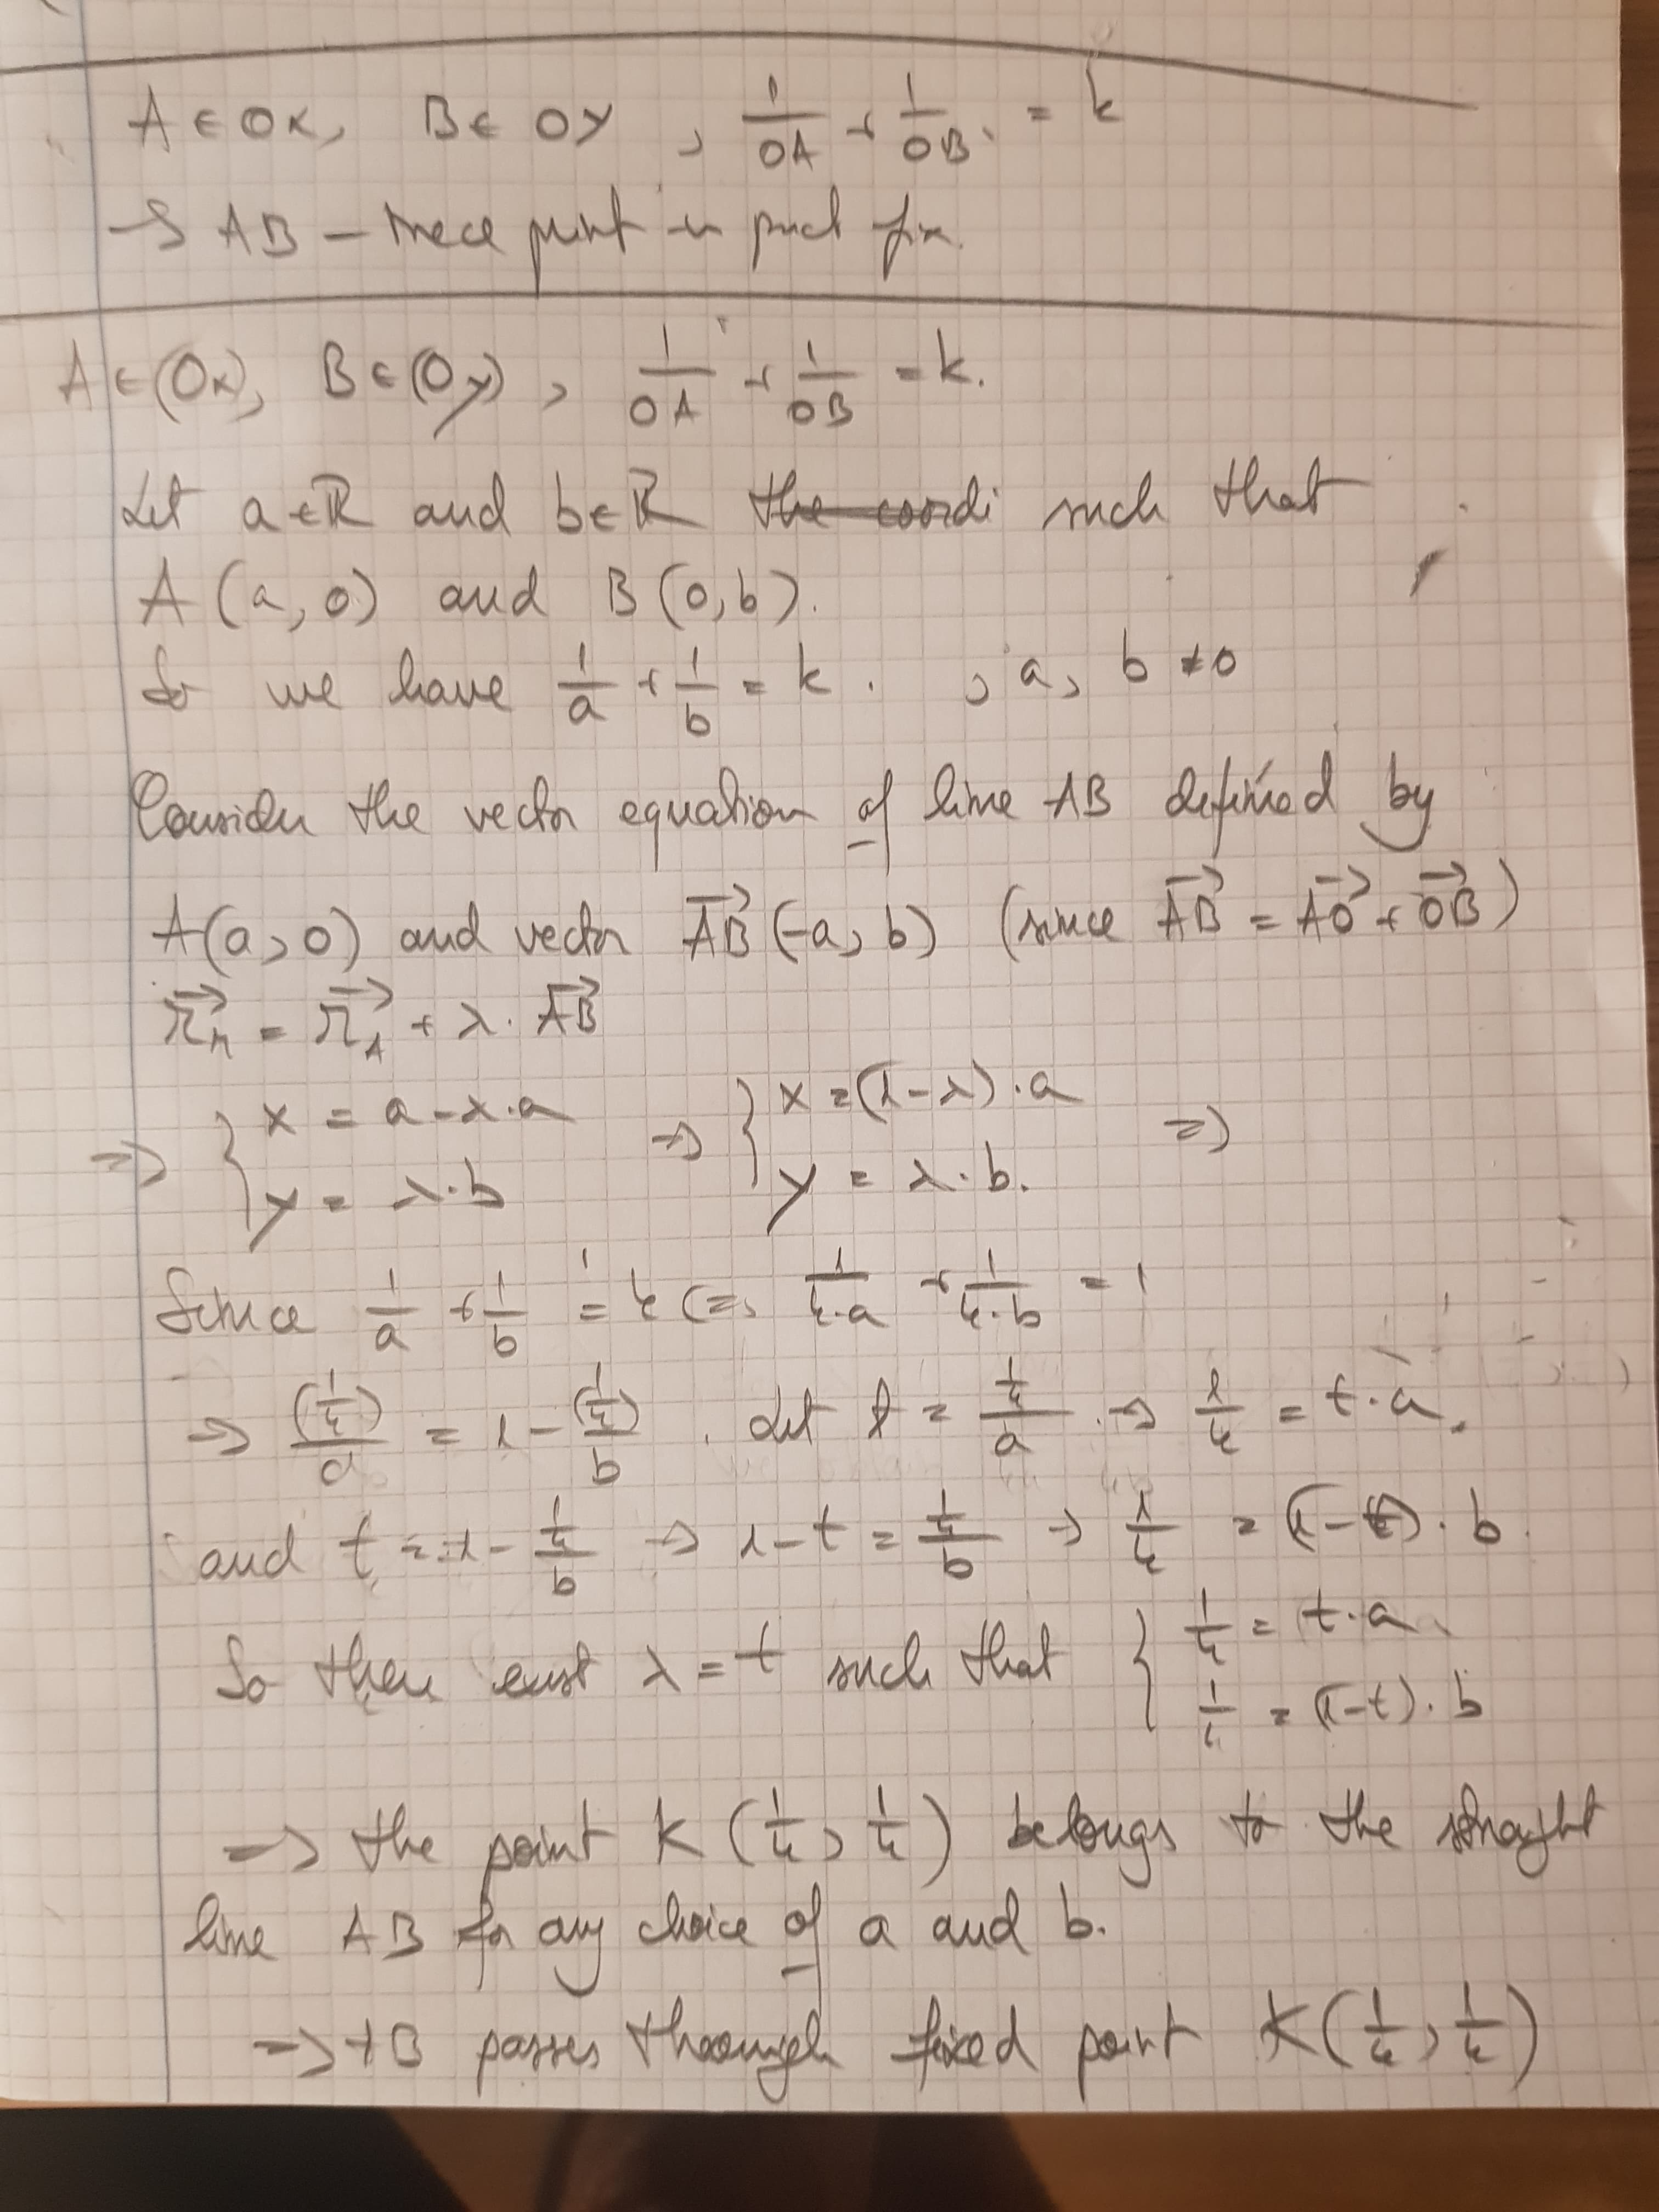 A ∈ Ox, B ∈ Oy, 1/OA + 1/OB = k
→ AB – trece print-un punct fix.
A ∈ (Ox), B ∈ (Oy), 1/OA + 1/OB = k.
Let a ∈ ℝ and b ∈ ℝ the coordi such that
A(a, 0) and B(0, b).
So we have 1/a + 1/b = k. , a, b ≠ 0
Consider the vector equation of line AB defined by
A(a, 0) and vector AB⃗(-a, b) (since AB⃗ = AO⃗ + OB⃗)
r⃗_M = r⃗_A + λ · AB⃗
⇒ { x = a - λ·a ; y = λ·b ⇒ { x = (1-λ)·a ; y = λ·b. ⇒
Since 1/a + 1/b = k ⇔ 1/(k·a) + 1/(k·b) = 1
⇒ (1/k)/a = 1 - (1/k)/b . Let t = (1/k)/a . ⇒ 1/k = t·a.
and t = 1 - (1/k)/b ⇒ 1-t = (1/k)/b ⇒ 1/k = (1-t)·b.
So there exist λ = t such that { 1/k = t·a. ; 1/k = (1-t)·b
→ the point K(1/k, 1/k) belongs to the straight
line AB for any choice of a and b.
→ AB passes through fixed point K(1/k, 1/k)